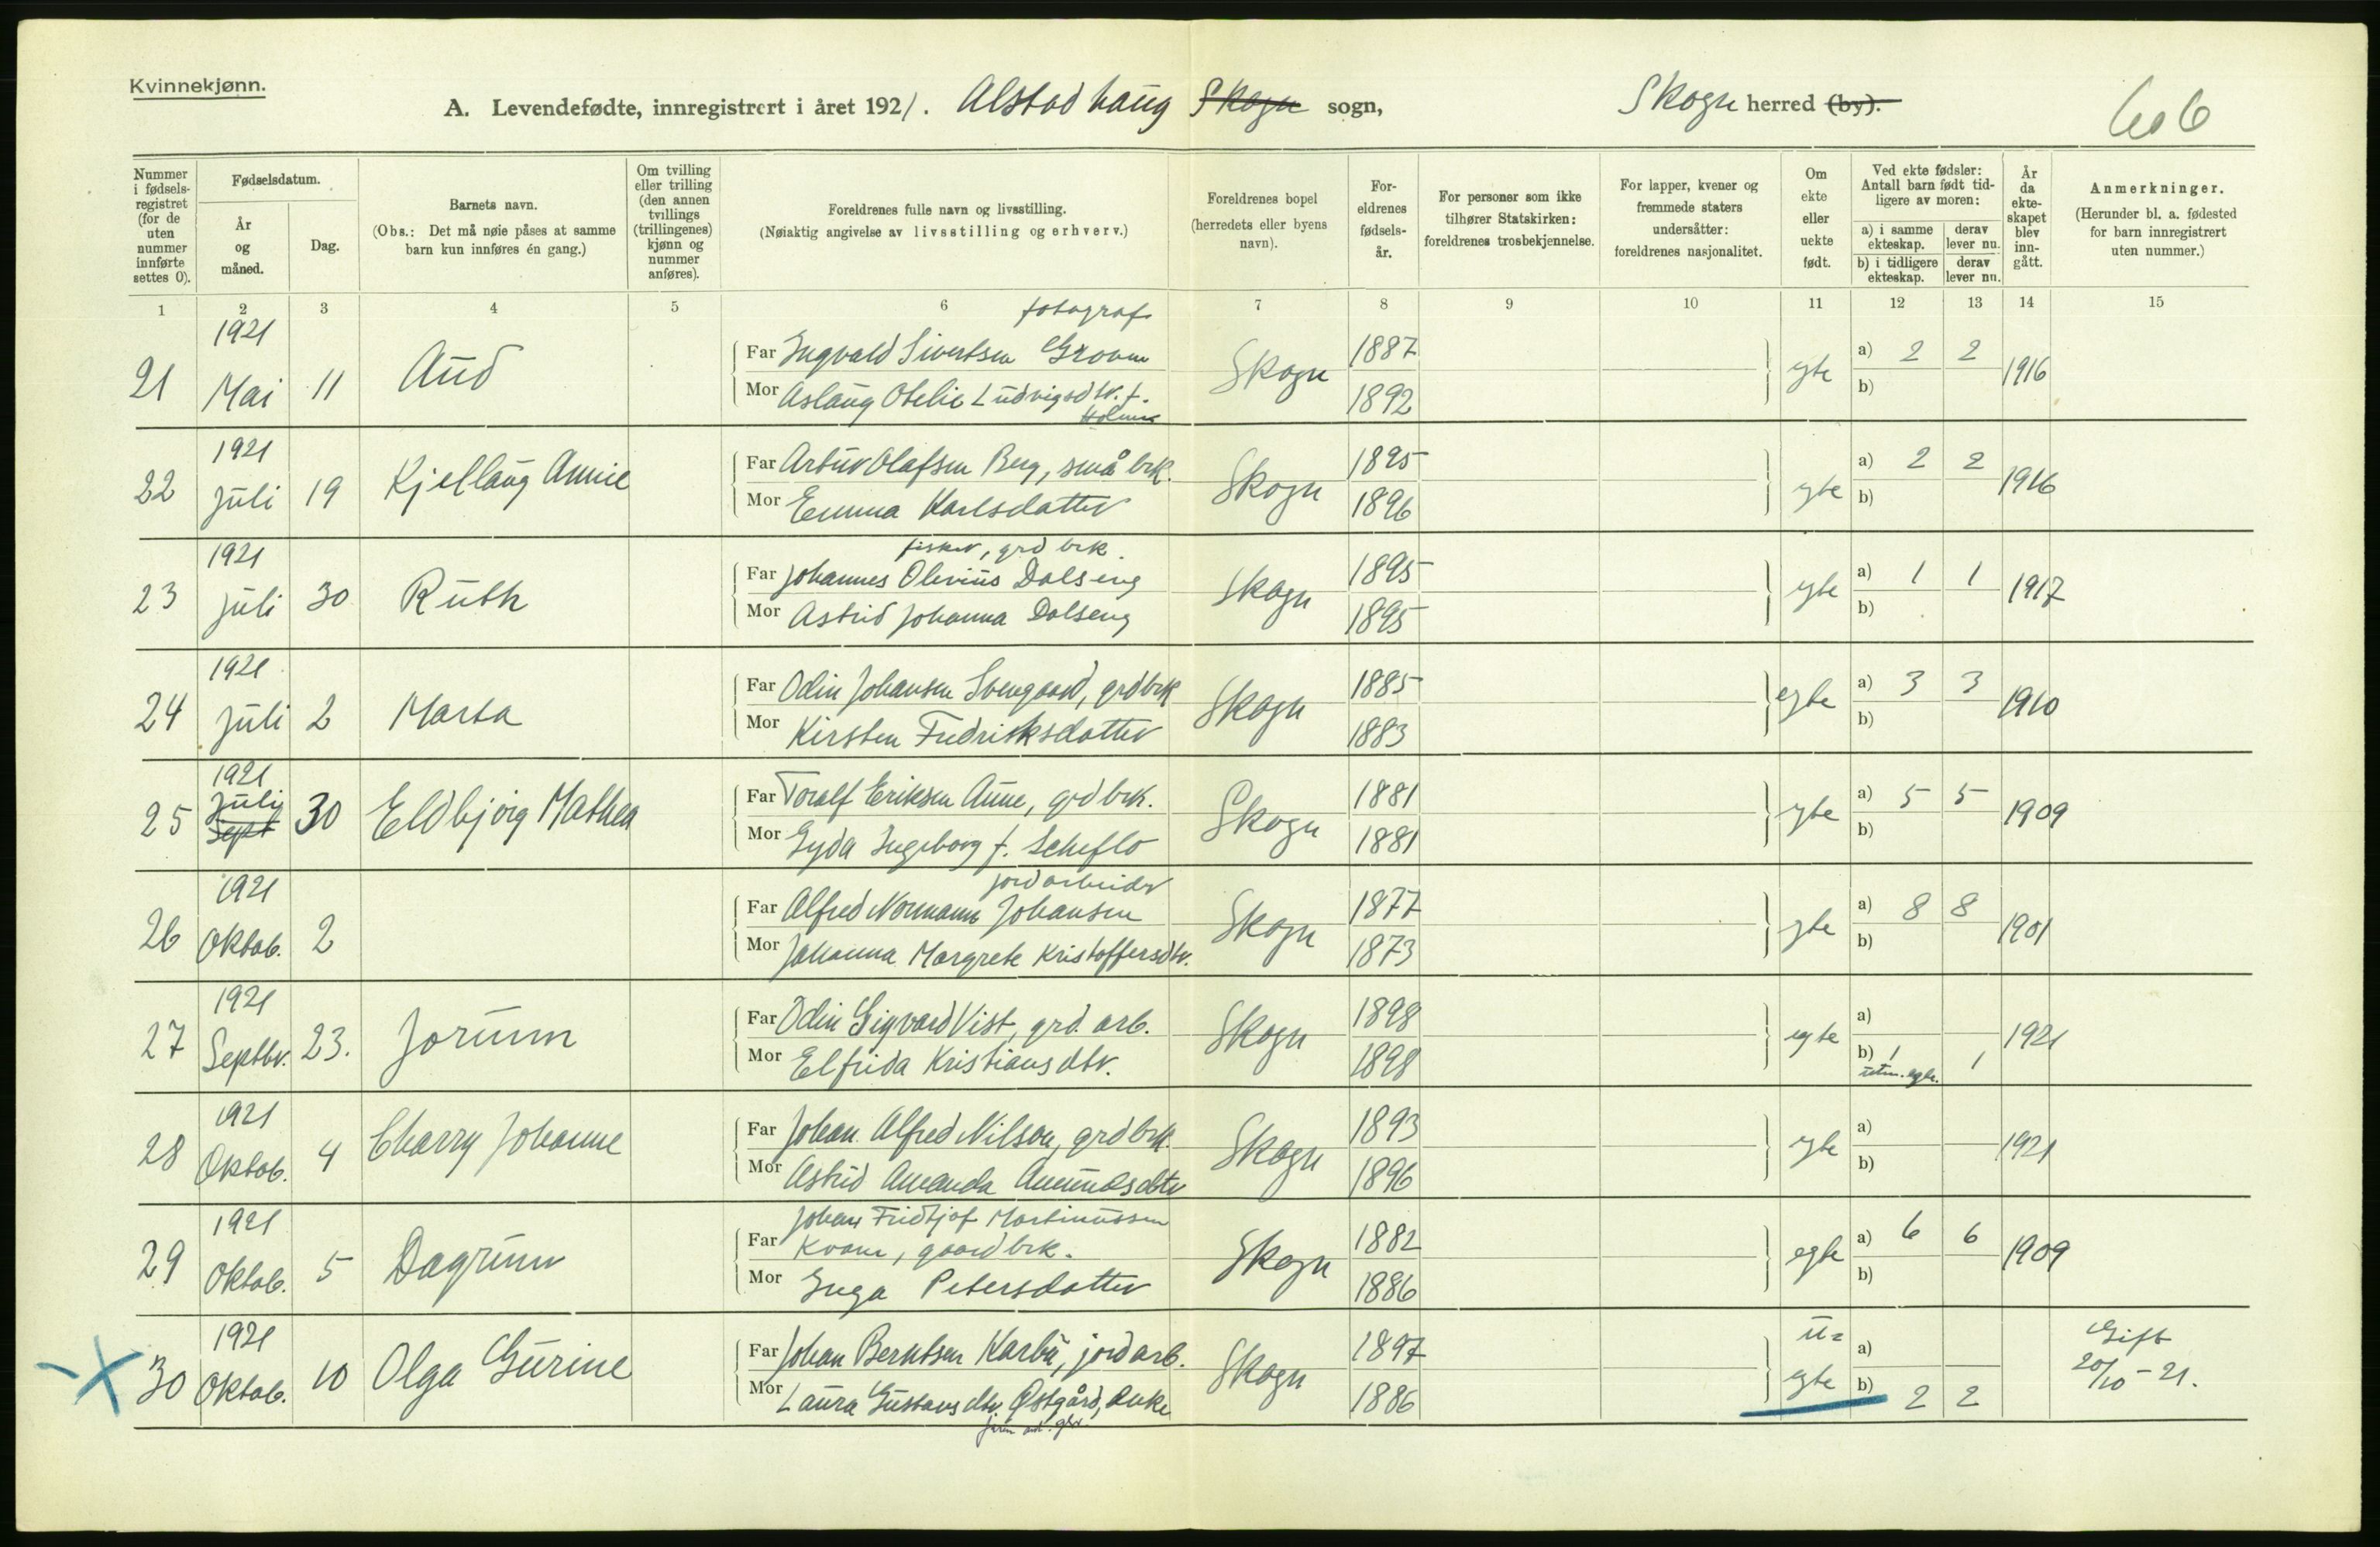 Kvinnekjønn.
A. Levendefødte, innregistrert i året 1921. Alstadhaug Skogn sogn, Skogn herred (by). 606
Nummer i fødsels-registret (for de uten nummer innførte settes 0).
Fødselsdatum.
År og måned.
Dag.
Barnets navn.
(Obs.: Det må nøie påses at samme barn kun innføres én gang.)
Om tvilling eller trilling (den annen tvillings (trillingenes) kjønn og nummer anføres).
Foreldrenes fulle navn og livsstilling.
(Nøiaktig angivelse av livsstilling og erhverv.)
Foreldrenes bopel (herredets eller byens navn).
For-eldrenes fødsels-år.
For personer som ikke tilhører Statskirken: foreldrenes trosbekjennelse.
For lapper, kvener og fremmede staters undersåtter: foreldrenes nasjonalitet.
Om ekte eller uekte født.
Ved ekte fødsler: Antall barn født tid-ligere av moren:
a) i samme ekteskap. derav lever nu.
b) i tidligere ekteskap. derav lever nu.
År da ekte-skapet blev inn-gått.
Anmerkninger.
(Herunder bl. a. fødested for barn innregistrert uten nummer.)
1 2 3 4 5 6 7 8 9 10 11 12 13 14 15
fotograf
21 1921 Mai 11 Aud Far Ingvald Sivertsen Skogn 1887 egte a) 2 2 1916
Mor Aslaug Otelie Ludvigsdtr. f. Holmen 1892 b)
22 1921 Juli 19 Kjellaug Annie Far Artur Olafsen Berg, småbrk. Skogn 1895 egte a) 2 2 1916
Mor Emma Karlsdatter 1896 b)
fisker, grdbrk.
23 1921 Juli 30 Ruth Far Johannes Olevius Dalseng Skogn 1895 egte a) 1 1 1917
Mor Astrid Johanna Dalseng 1895 b)
24 1921 Juli 2 Marta Far Odin Johansen Svengaard, grdbrk Skogn 1885 egte a) 3 3 1910
Mor Kirsten Fredriksdatter 1883 b)
25 1921 Juli Sept 30 Eldbjørg Mathea Far Toralf Eriksen Aune, grdbrk. Skogn 1881 egte a) 5 5 1909
Mor Gyda Ingeborg f. Scheflo 1881 b)
jordarbeider
26 1921 Oktob. 2 Far Alfred Normann Johansen Skogn 1877 egte a) 8 8 1901
Mor Johanna Margrete Kristoffersdtr. 1873 b)
27 1921 Septbr. 23. Jorunn Far Odin Sigvard Vist, grd. arb. Skogn 1898 egte a) 1921
Mor Elfrida Kristiansdtr. 1898 b) 1 utm. egte. 1
28 1921 Oktob. 4 Charry Johanne Far Johan Alfred Nilson, grdbrk. Skogn 1893 egte a) 1921
Mor Astrid Amanda Amundsdtr 1896 b)
Johan Fridtjof Martinussen
29 1921 Oktob. 5 Dagrunn Far Kvam, gaardbrk. Skogn 1882 egte a) 6 6 1909
Mor Inga Petersdatter 1886 b)
30 1921 Oktob. 10 Olga Gurine Far Johan Berntsen Karbu, jordarb. Skogn 1897 u= egte a) Gift 20/10 - 21.
Mor Laura Gustavsdtr. Østgård, enke 1886 b) 2 2